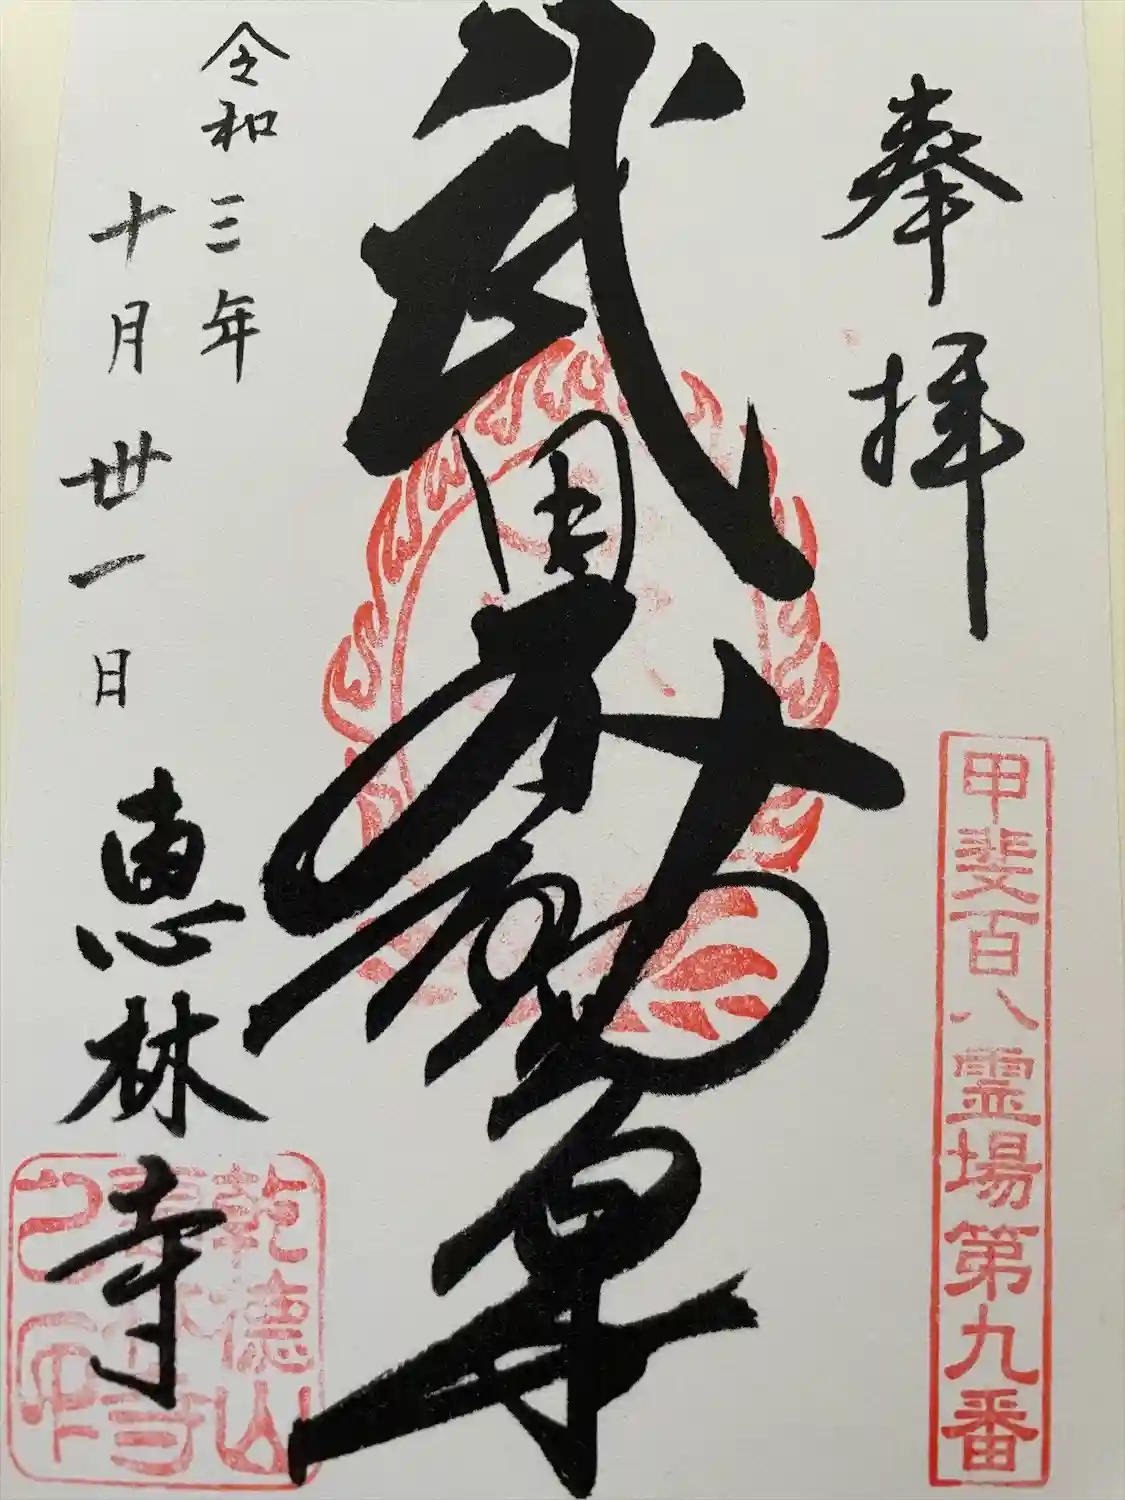 奉拝
甲斐百八霊場第九番
武田不動尊
令和三年
十月丗一日
恵林寺
乾徳山
恵林寺
之印